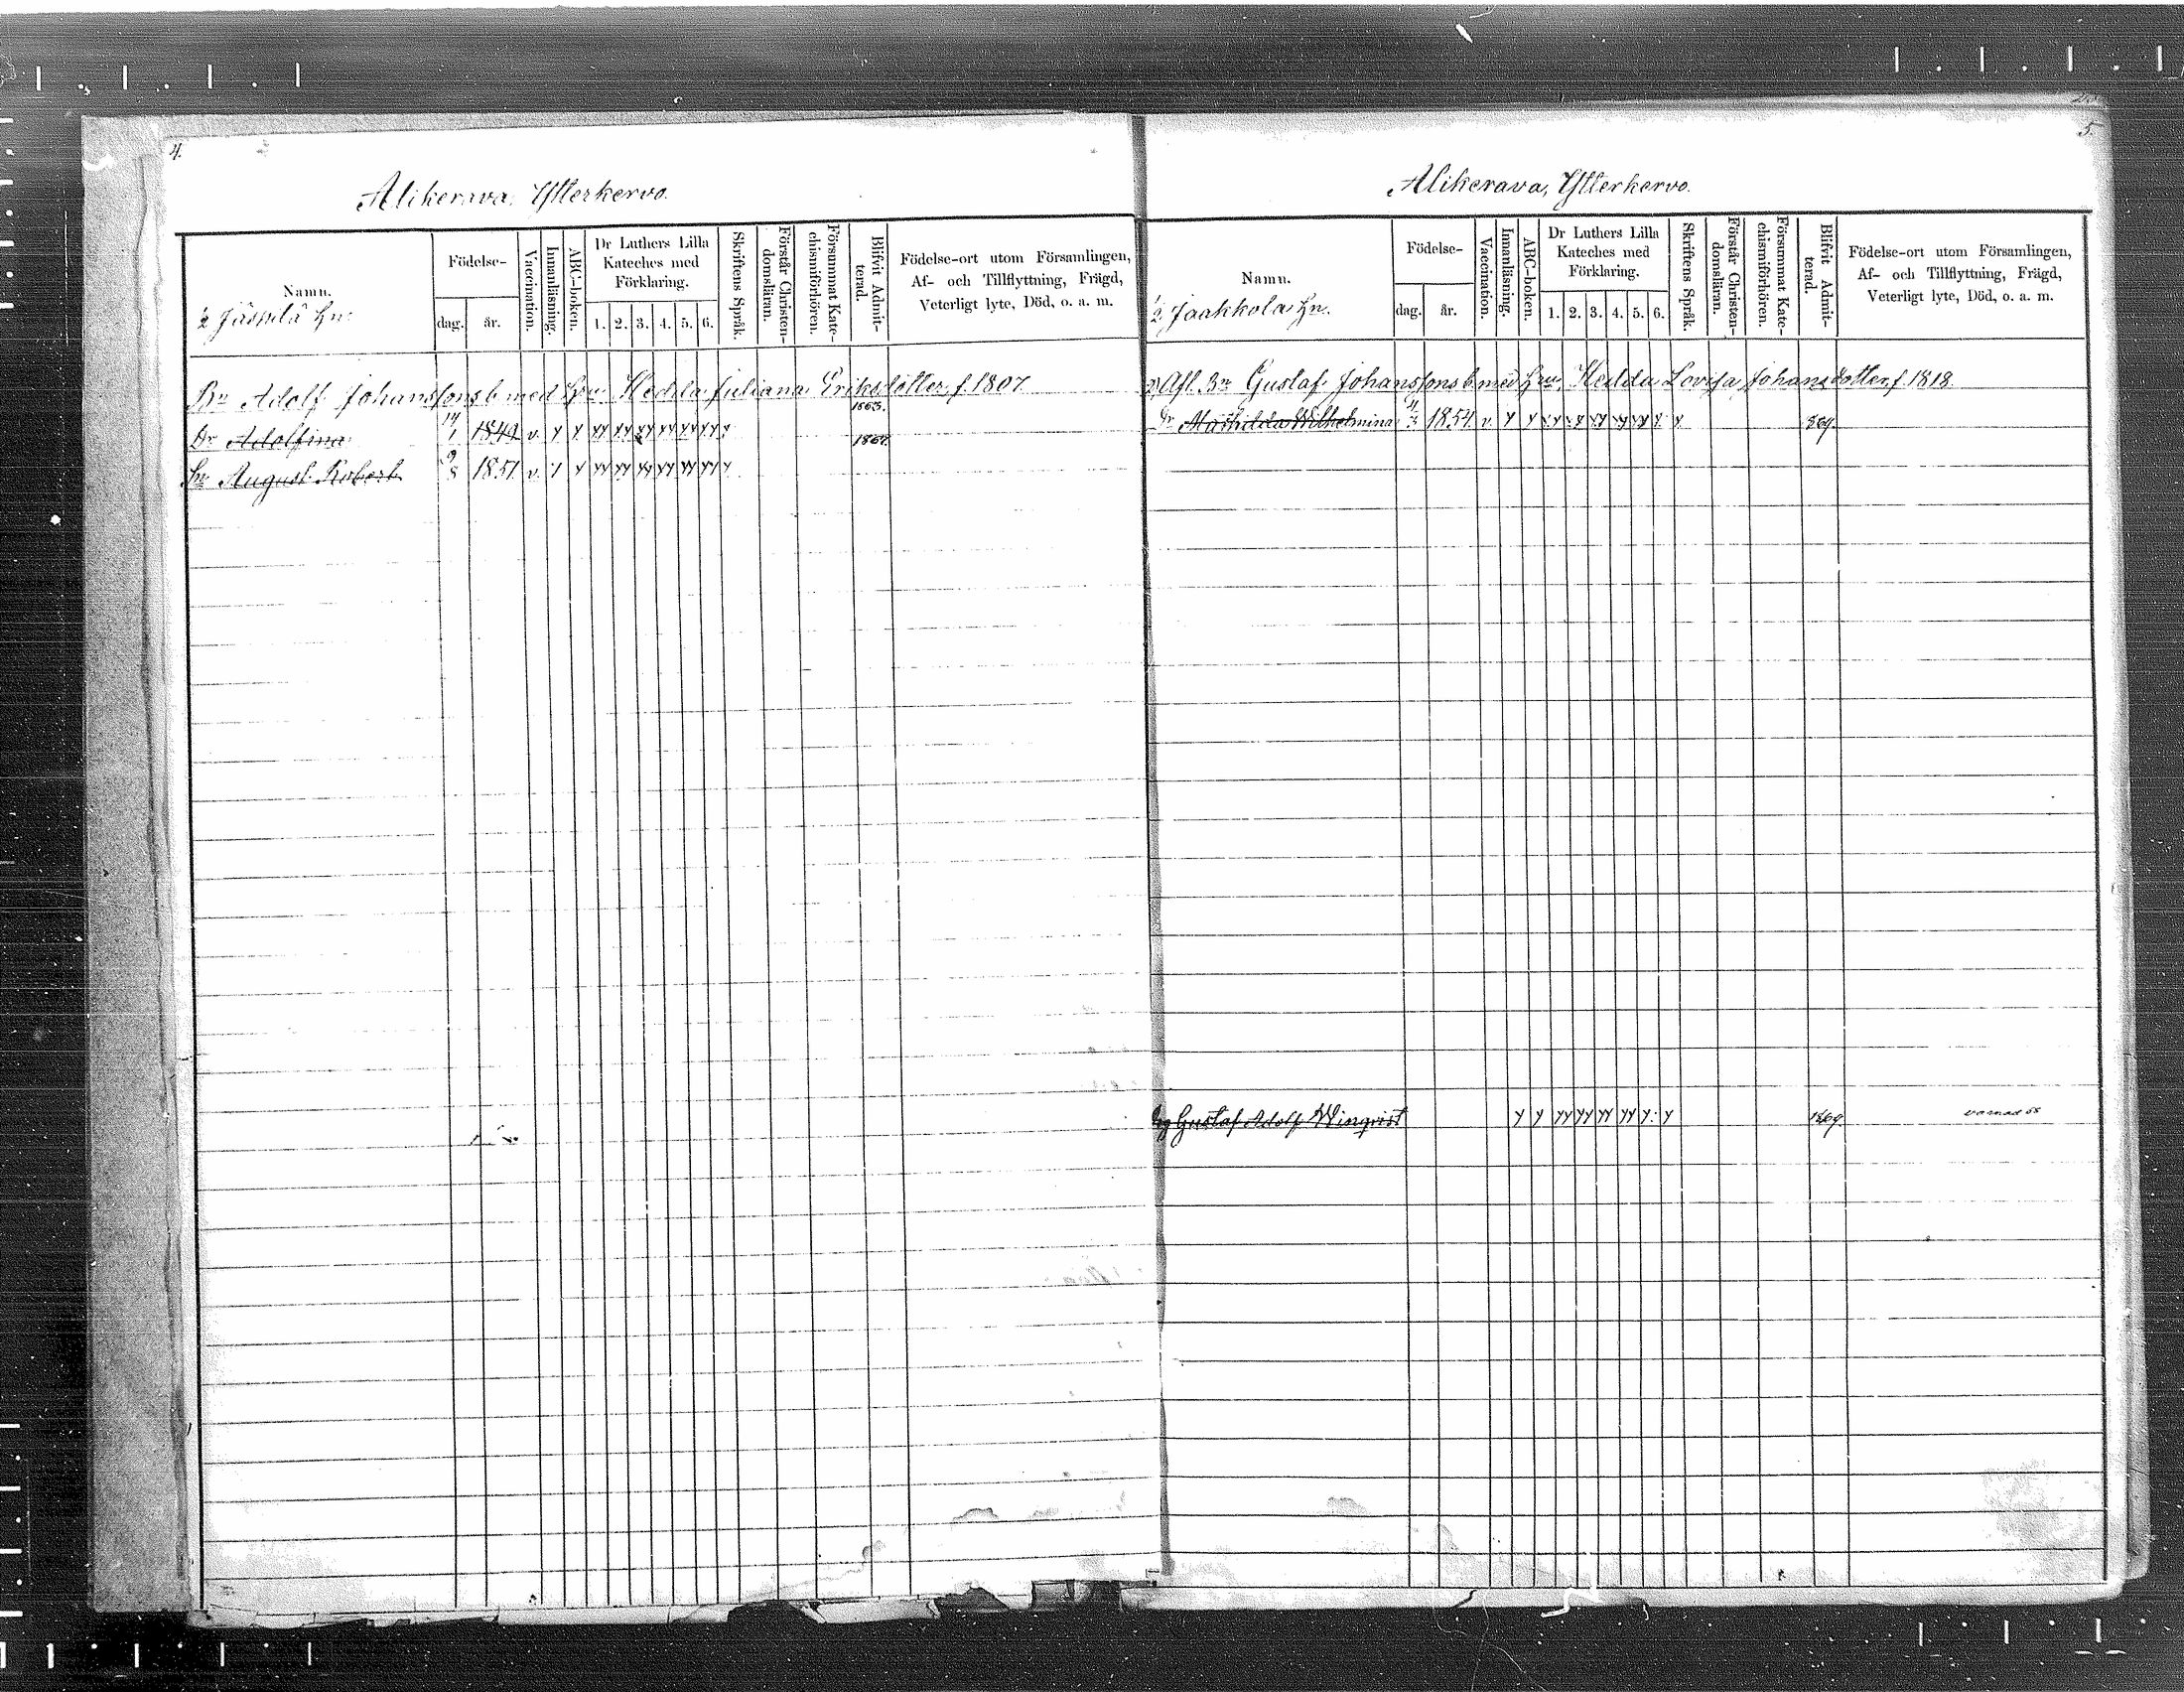 4.
Alikerava, Ytterkervo.
Namn.
Födelse-
dag.
år.
Vaccination.
Innanläsning.
ABC-boken.
Dr Luthers Lilla
Kateches med
Förklaring.
1. 2. 3. 4. 5. 6.
Skriftens Språk.
Förstår Christen-
domsläran.
Försummat Kate-
chismiförhören.
Blifvit Admit-
terad.
Födelse-ort utom Församlingen,
Af- och Tillflyttning, Frägd,
Veterligt lyte, Död, o. a. m.
1/2 Jäspilä Hn.
Bn Adolf Johanssons b. med Hru Hedda Juliana Eriksdotter, f. 1807
Dr Adolfina 14/1 1849 v. y y yy yy yy yy yy yy y 1865.
Sn August Robert 9/8 1851 v. y y yy yy yy yy yy yy y 1867.
5.
Alikerava, Ytterkervo.
Namn.
Födelse-
dag.
år.
Vaccination.
Innanläsning.
ABC-boken.
Dr Luthers Lilla
Kateches med
Förklaring.
1. 2. 3. 4. 5. 6.
Skriftens Språk.
Förstår Christen-
domsläran.
Försummat Kate-
chismiförhören.
Blifvit Admit-
terad.
Födelse-ort utom Församlingen,
Af- och Tillflyttning, Frägd,
Veterligt lyte, Död, o. a. m.
1/2 Jaakkola Hn.
Afl. Bn Gustaf Johanssons b. med Hru Hedda Lovisa Johansdotter, f. 1818.
Dr Mathilda Wilhelmina 1854 v. y y yy yy yy yy yy y y 869.
Gustaf Adolf Winqvist y y yy yy yy yy y. y 1869